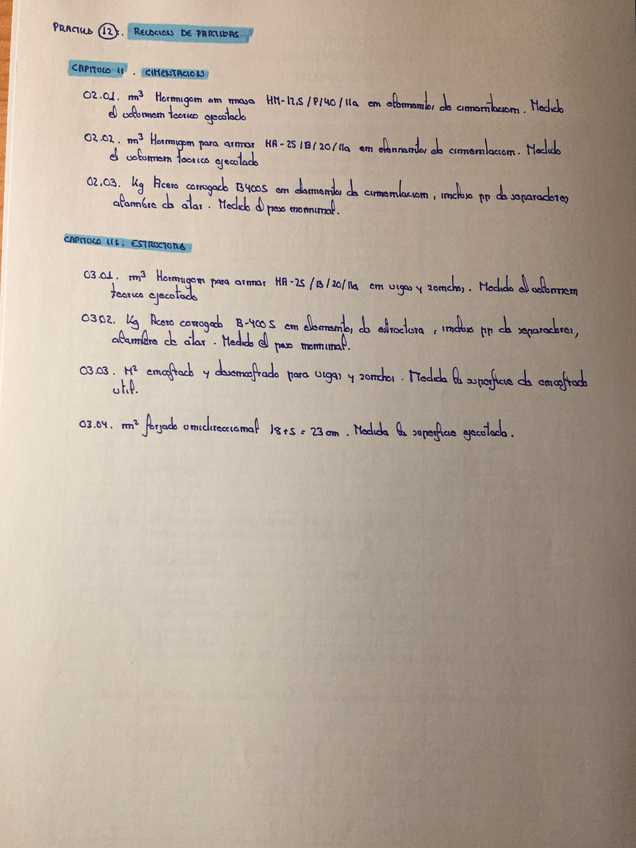 PRACTICA 12. RELACION DE PARTIDAS
CAPITULO II. CIMENTACION
02.01. m³ Hormigon en masa HM-12,5/P/40/IIa en elementos de cimentacion. Medido
el volumen teorico ejecutado
02.02. m³ Hormigon para armar HA-25/B/20/IIa en elementos de cimentacion. Medido
el volumen teorico ejecutado
02.03. Kg Acero corrugado B400S en elementos de cimentacion, incluso pp de separadores,
alambre de atar. Medido el peso nominal.
CAPITULO III. ESTRUCTURA
03.01. m³ Hormigon para armar HA-25/B/20/IIa en vigas y zunchos. Medido el volumen
teorico ejecutado
03.02. Kg Acero corrugado B-400S en elementos de estructura, incluso pp de separadores,
alambre de atar. Medido el peso nominal.
03.03. M² encofrado y desencofrado para vigas y zunchos. Medida la superficie de encofrado
util.
03.04. m² forjado unidireccional 18+5 = 23 cm. Medida la superficie ejecutada.